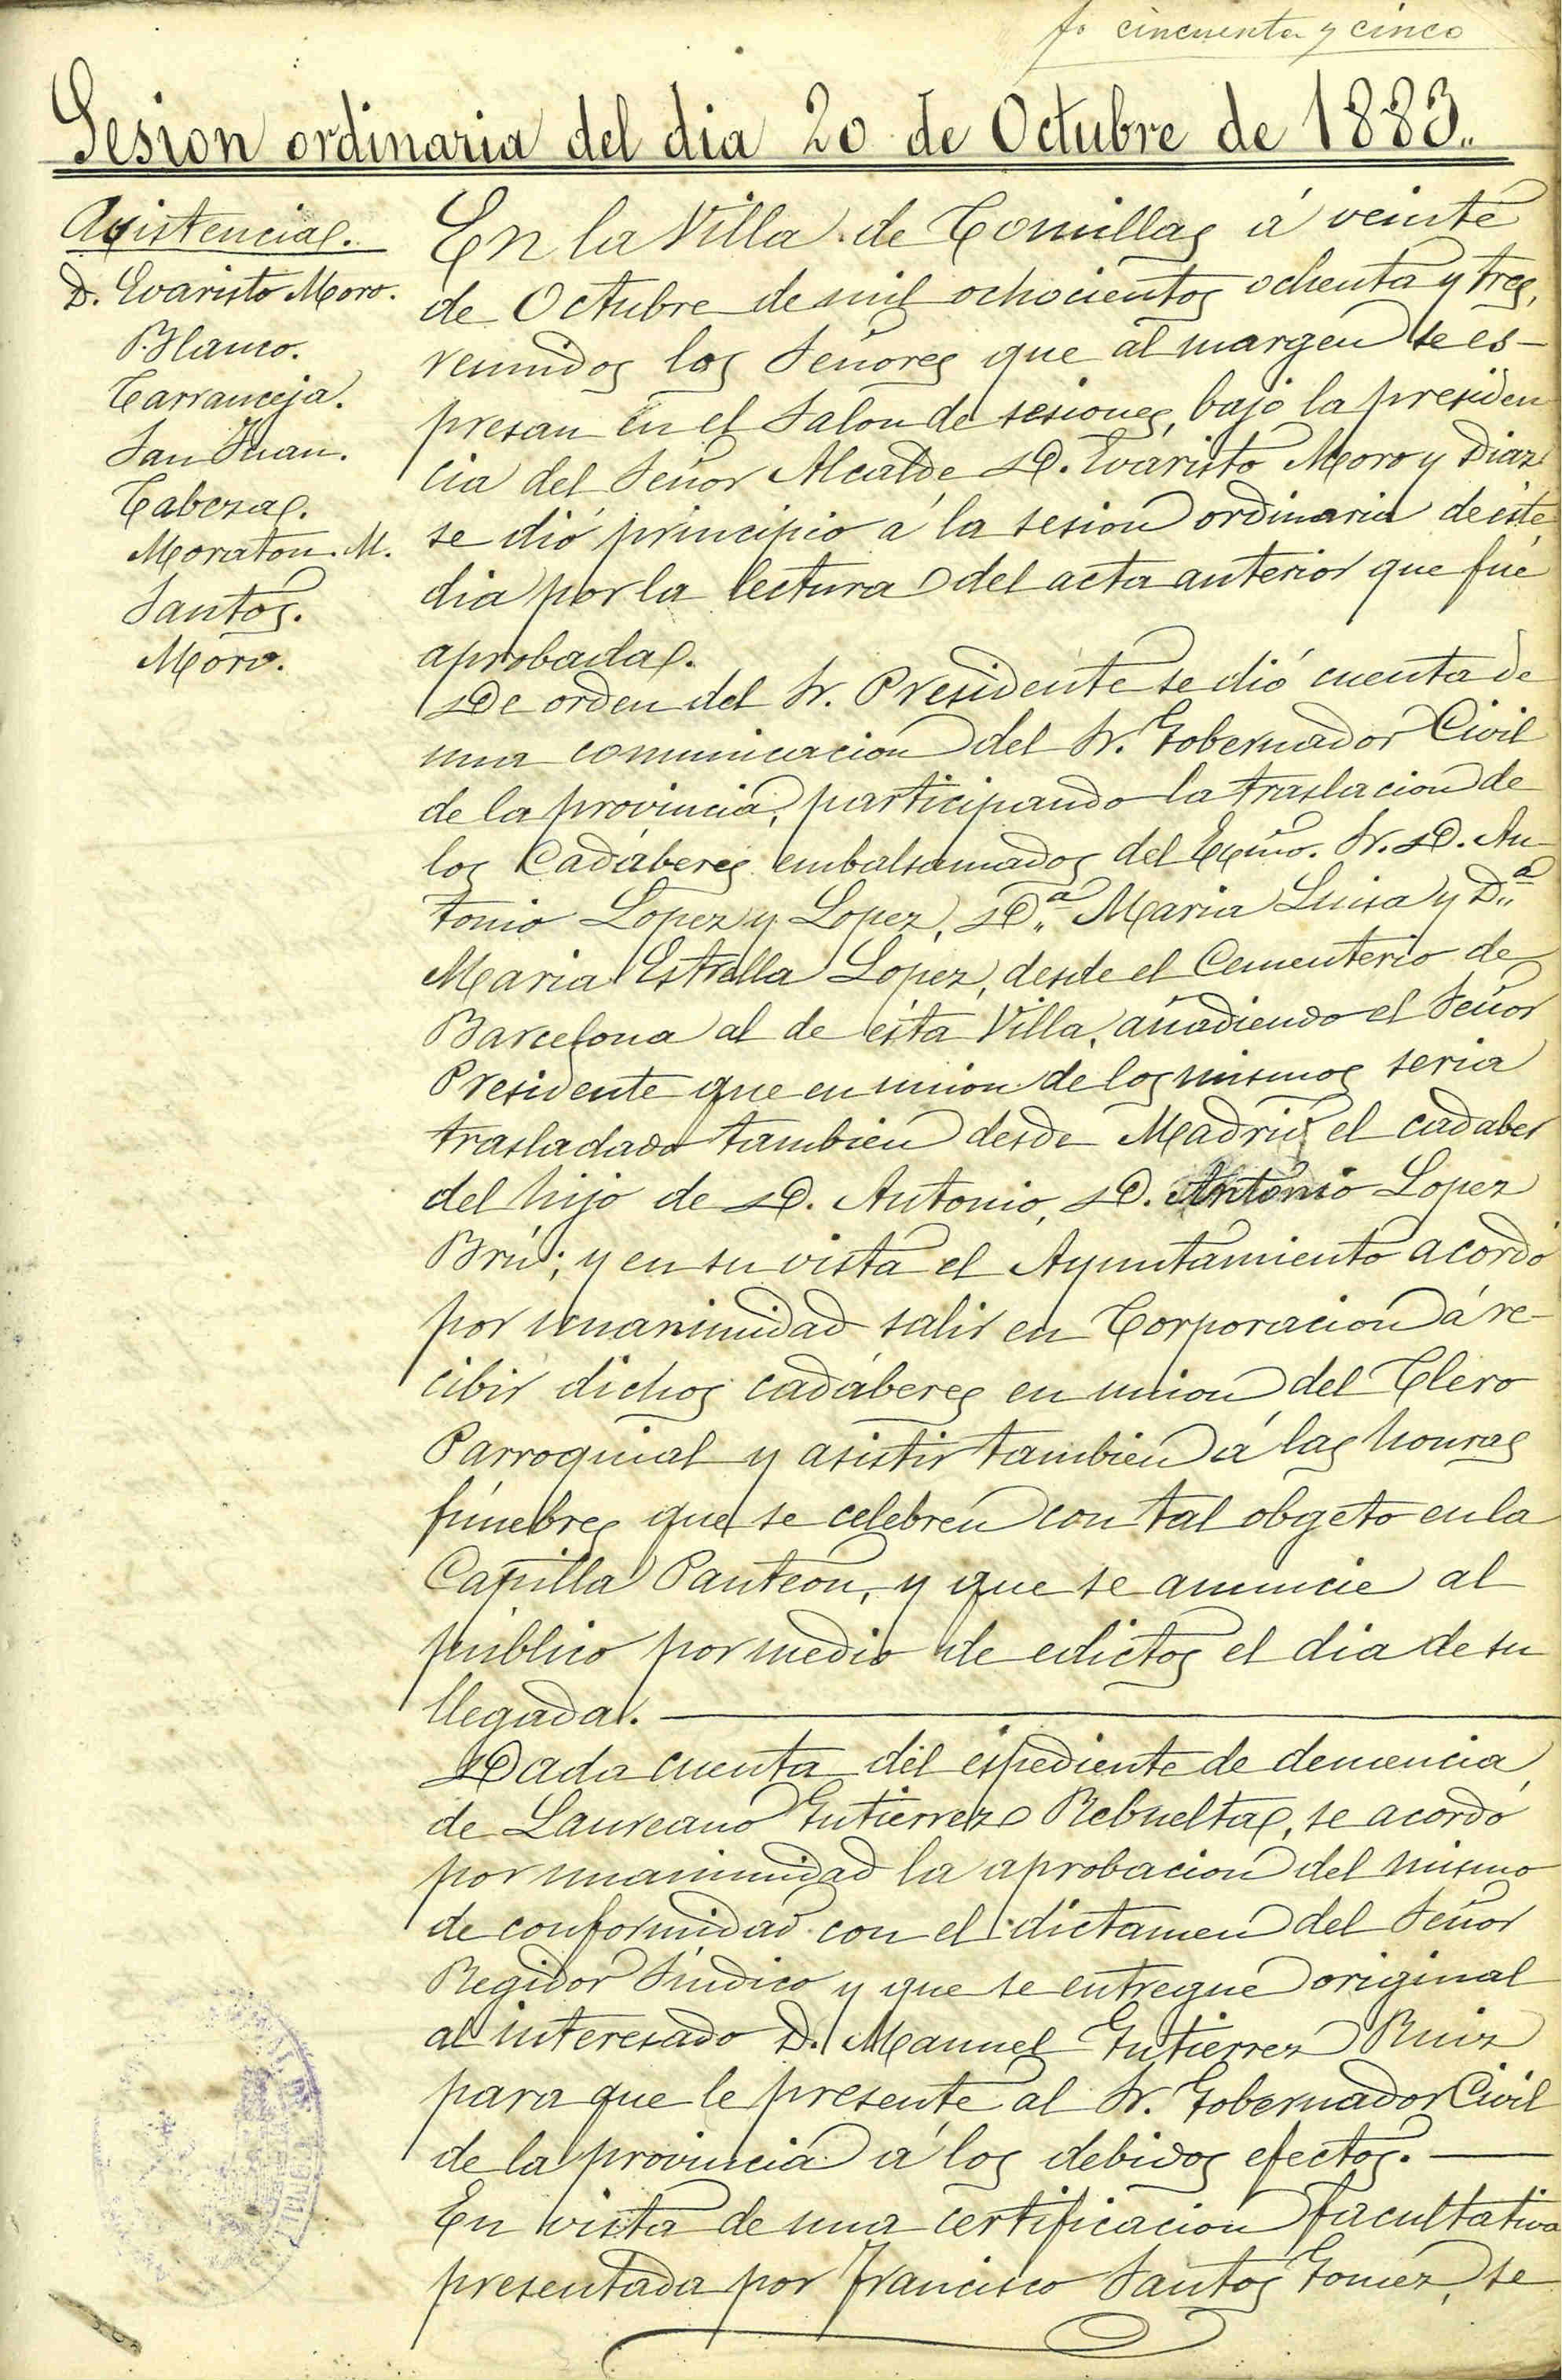 fo cincuenta y cinco
Sesion ordinaria del dia 20 de Octubre de 1883.,
Asistencia.
D. Evaristo Moro.
Blanco.
Carranceja.
San Juan.
Cabeza.
Moraton. M.
Santos.
Moro.
En la Villa de Comillas á veinte
de Octubre de mil ochocientos ochenta y tres,
reunidos los Señores que al margen se es-
presan en el Salon de sesiones, bajo la presiden
cia del Señor Alcalde D. Evaristo Moro y Diaz
se dió principio á la sesion ordinaria de éste
dia por la lectura del acta anterior que fué
aprobada.
De orden del Sr. Presidente se dió cuenta de
una comunicacion del Sr. Gobernador Civil
de la provincia, participando la traslacion de
los Cadáberes embalsamados del Excmo. Sr. D. An-
tonio Lopez y Lopez, D.ª Maria Luisa y D.ª
Maria Estrella Lopez, desde el Cementerio de
Barcelona al de ésta Villa, añadiendo el Señor
Presidente que en union de los mismos seria
trasladado tambien desde Madrid el cadaber
del hijo de D. Antonio, D. Antonio Lopez
Brú; y en su vista el Ayuntamiento acordó
por unanimidad salir en Corporacion á re-
cibir dichos cadáberes en union del Clero
Parroquial y asistir tambien á las honras
fúnebres que se celebren con tal obgeto en la
Capilla Panteon, y que se anuncie al
público por medio de edictos el dia de su
llegada.
Dada cuenta del espediente de demencia
de Laureano Gutierrez Rebuelta, se acordó
por unanimidad la aprobacion del mismo
de conformidad con el dictamen del Señor
Regidor Síndico y que se entregue original
al interesado D. Manuel Gutierrez Ruiz
para que le presente al Sr. Gobernador Civil
de la provincia á los debidos efectos.
En vista de una certificacion facultativa
presentada por Francisco Santos Gomez, se